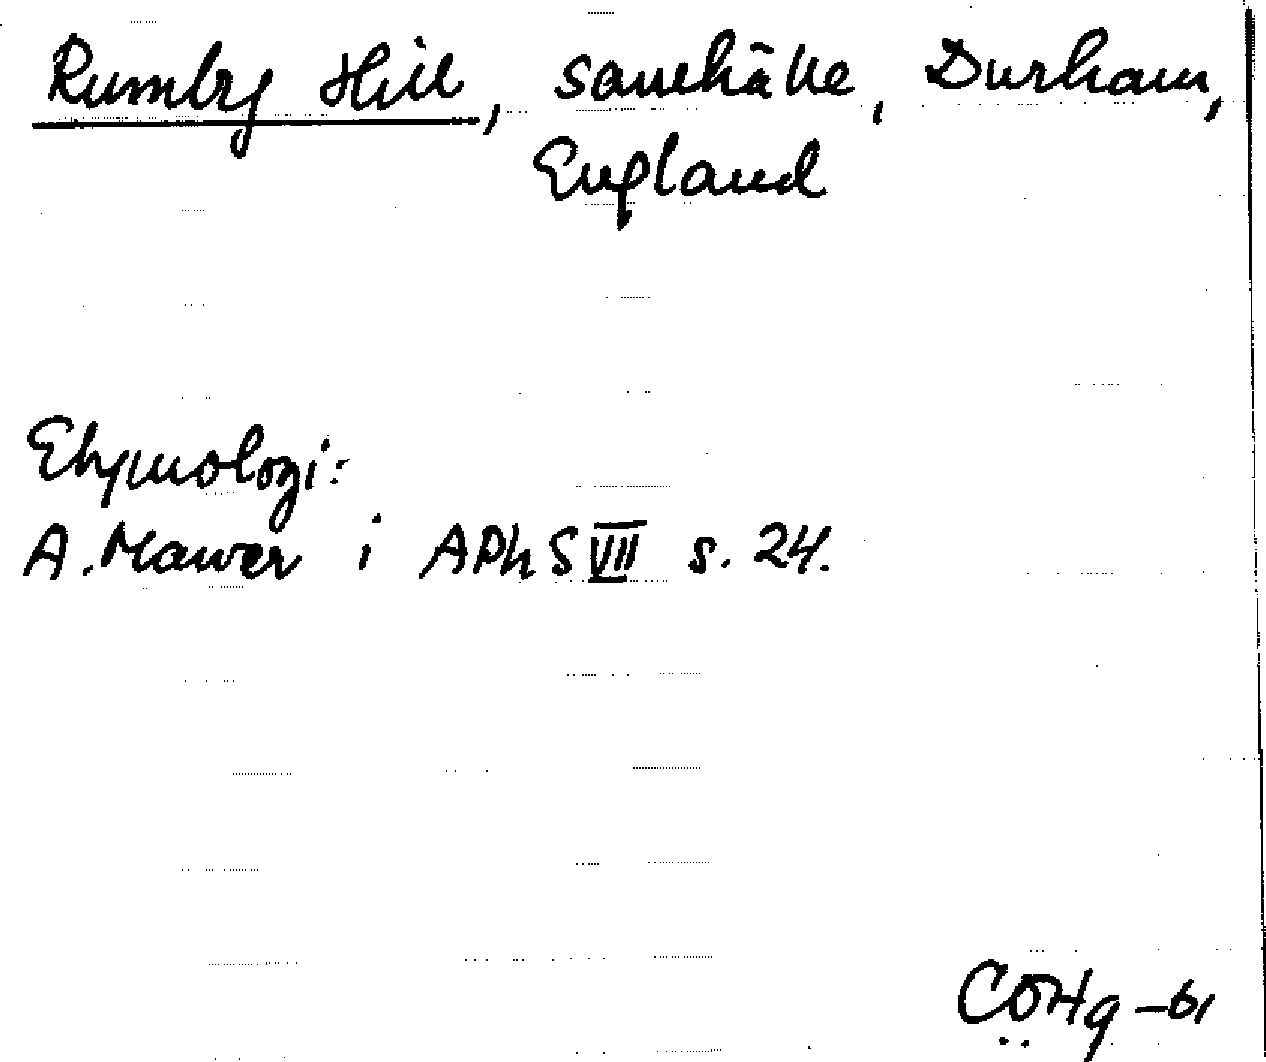 Rumby Hill, samhälle, Durham,
England
Etymologi:
A. Mawer i APhS VII s. 24.
CÖHg -61